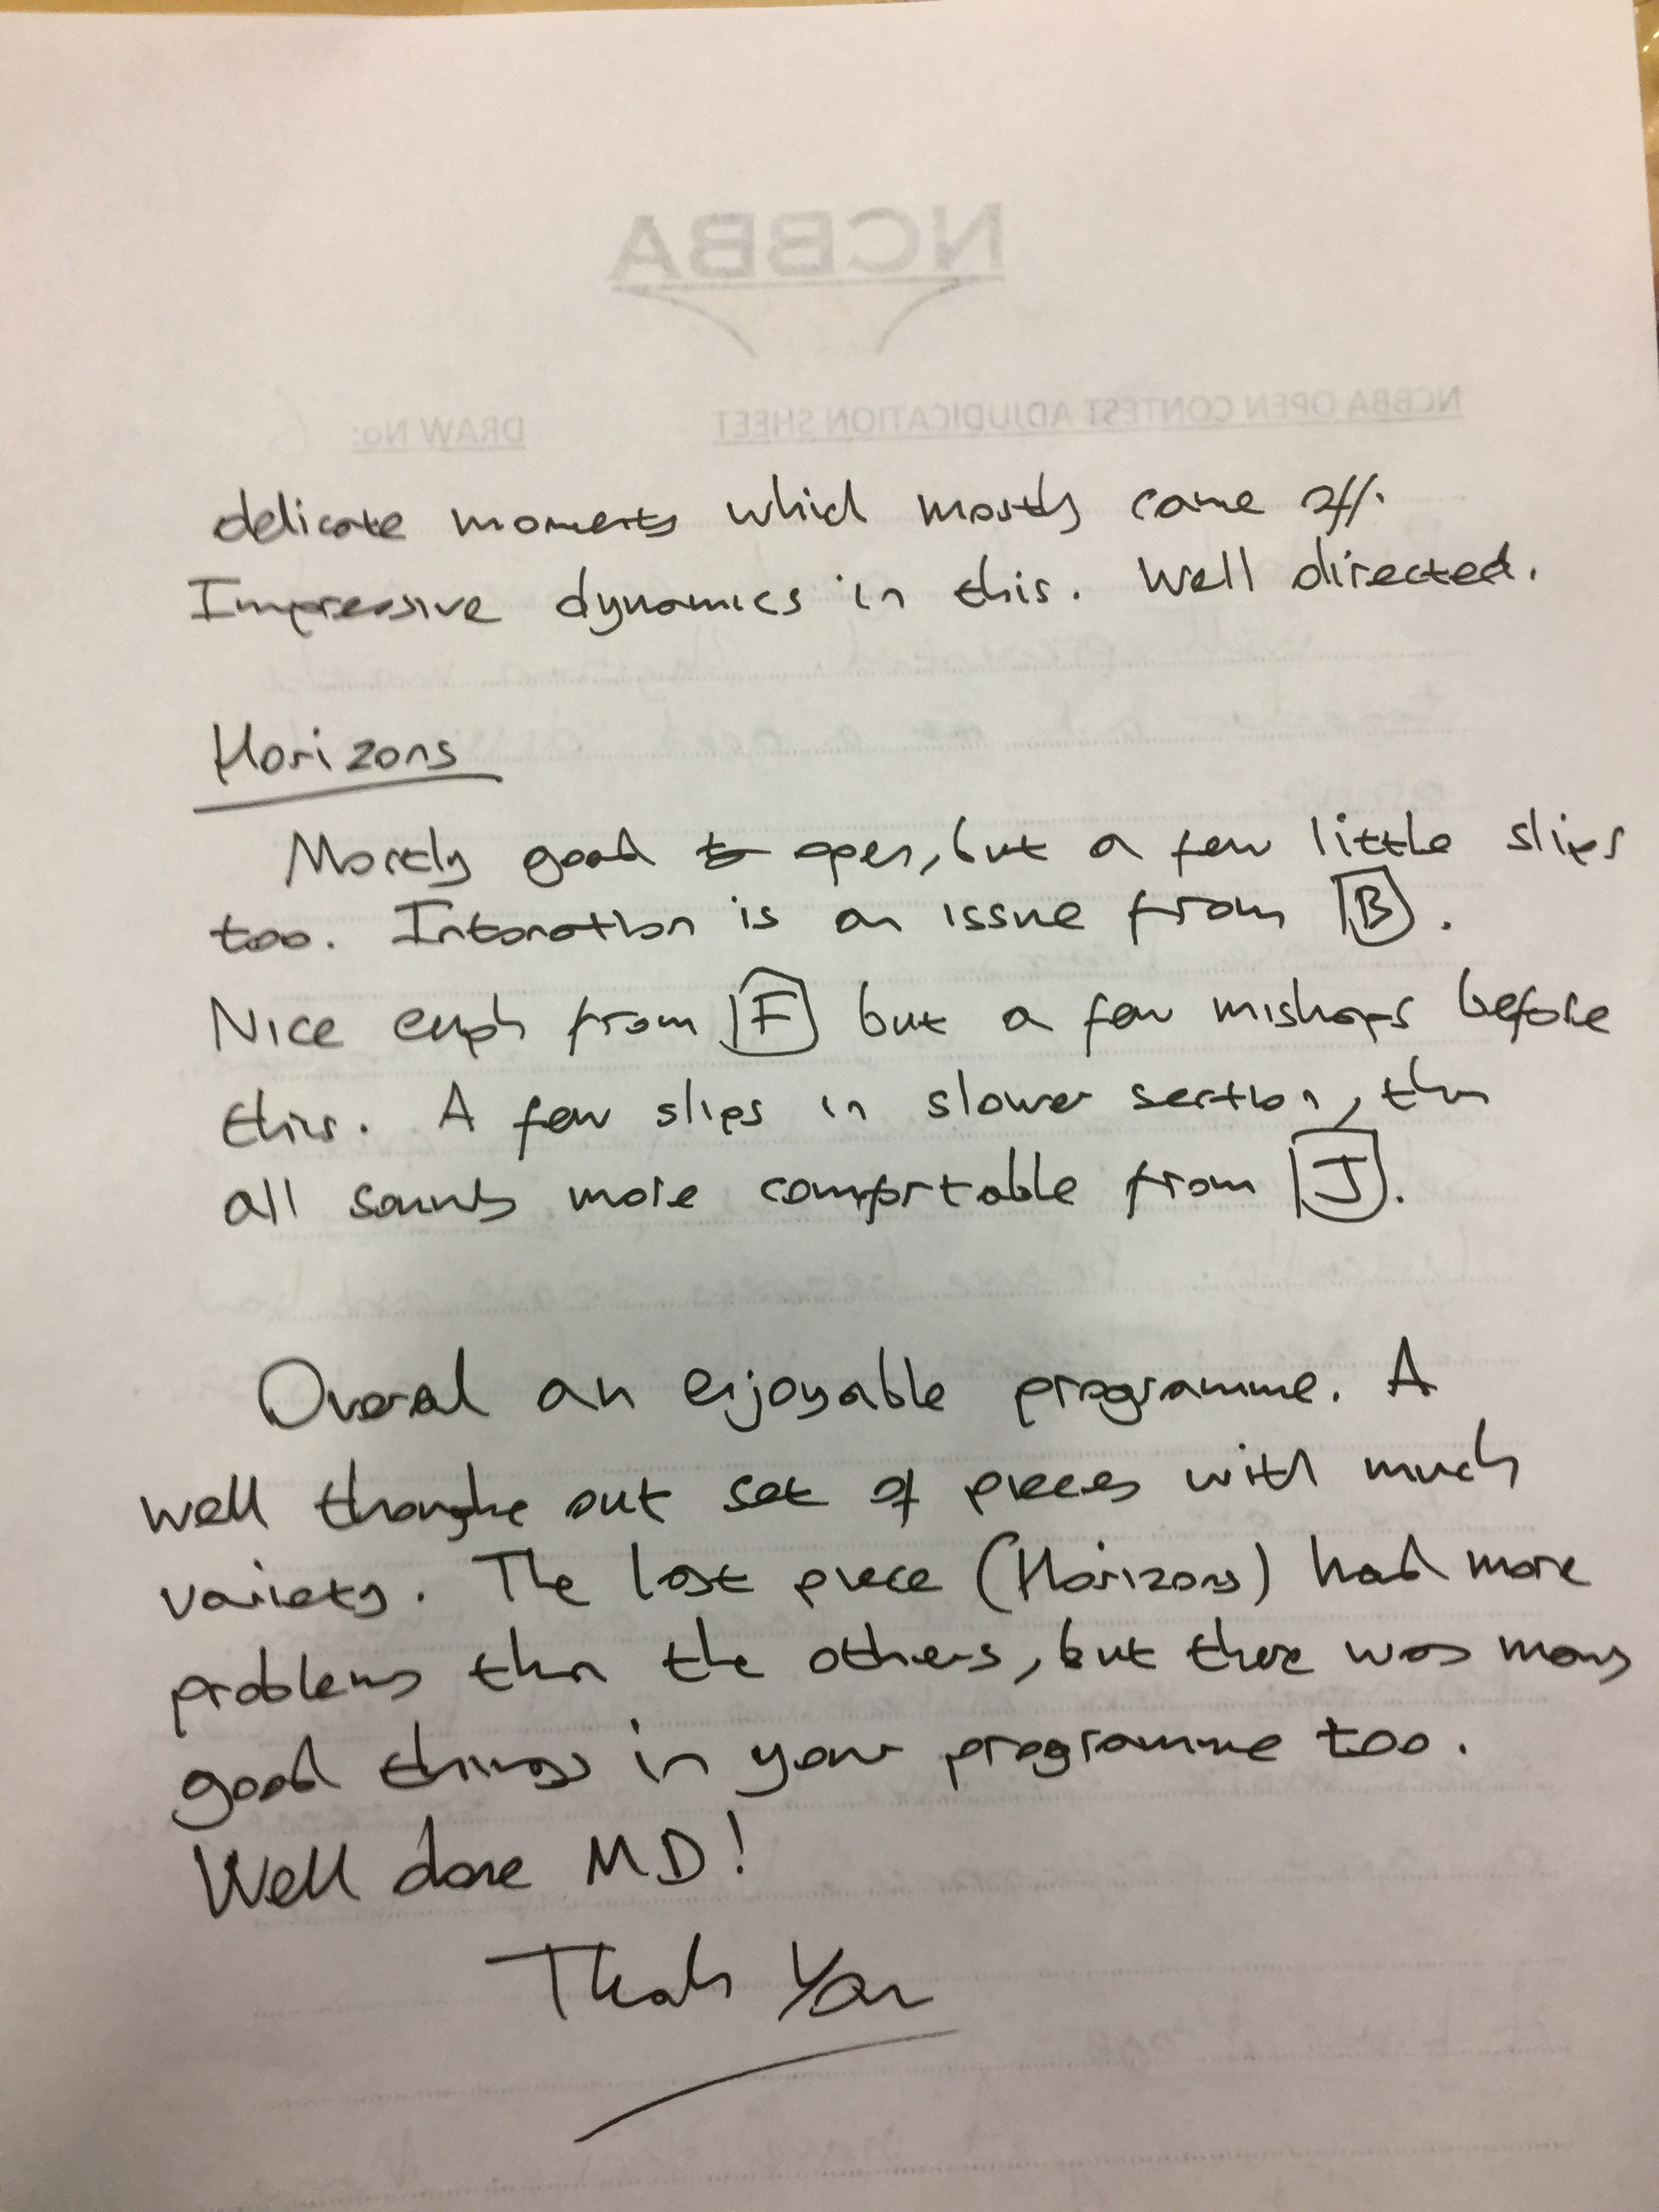 NCBBA
NCBBA OPEN CONTEST ADJUDICATION SHEET DRAW No: 6
delicate moments which mostly came off.
Impressive dynamics in this. Well directed.
Horizons
Mostly good to open, but a few little slips
too. Intonation is an issue from B.
Nice euph from F but a few mishaps before
this. A few slips in slower section, then
all sounds more comfortable from J.
Overall an enjoyable programme. A
well thought out set of pieces with much
variety. The last piece (Horizons) had more
problems than the others, but there was many
good things in your programme too.
Well done MD!
Thank You